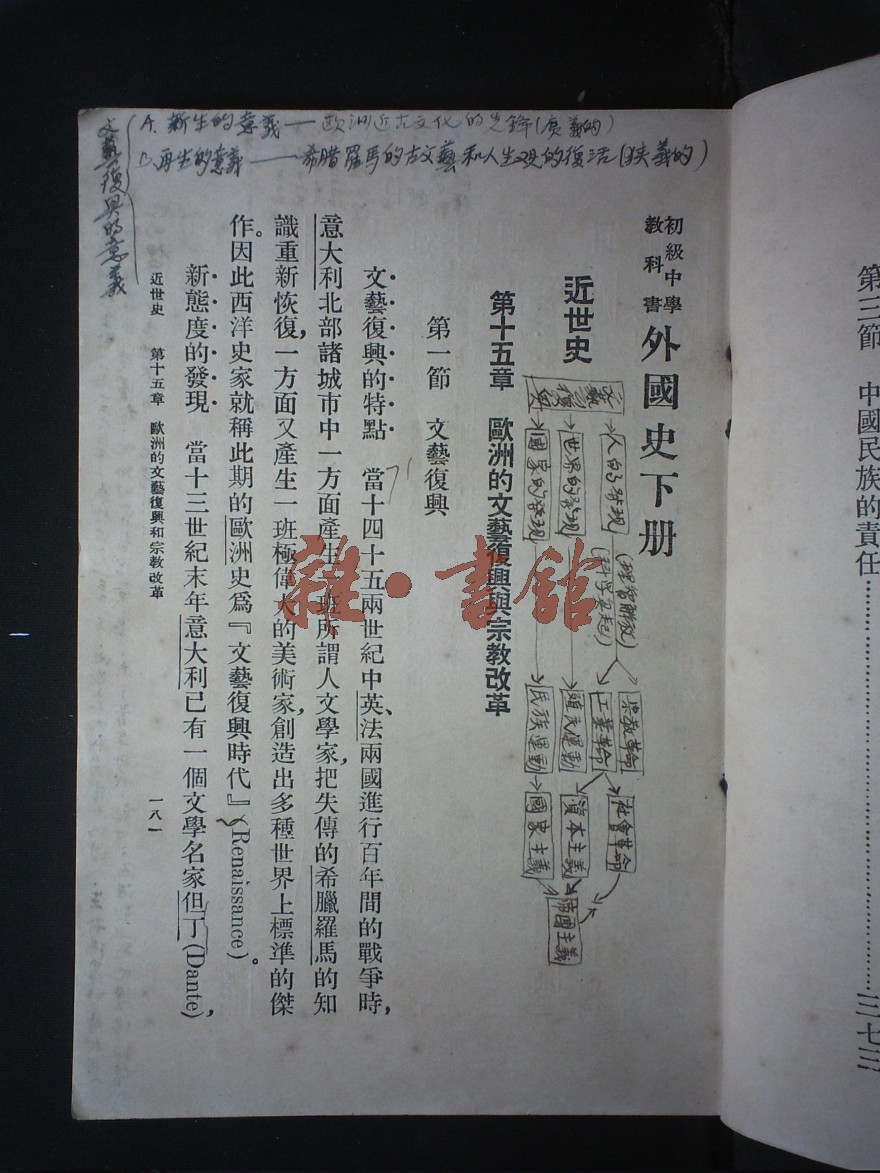 第三節　中國民族的責任……………………三七三
初級中學
教科書
外國史下册
近世史
第十五章　歐洲的文藝復興與宗教改革
第一節　文藝復興
文藝復興的特點　當十四十五兩世紀中英、法兩國進行百年間的戰爭時，
意大利北部諸城市中一方面產生一班所謂人文學家，把失傳的希臘羅馬的知
識重新恢復，一方面又產生一班極偉大的美術家，創造出多種世界上標準的傑
作。因此西洋史家就稱此期的歐洲史爲『文藝復興時代』(Renaissance)。
新態度的發現　當十三世紀末年意大利已有一個文學名家但丁(Dante)，
近世史　第十五章　歐洲的文藝復興和宗教改革
一八一
文藝復興的意義
A. 新生的意義——歐洲近古文化的先鋒(廣義的)
B. 再生的意義——希腊羅馬的古文藝和人生观的復活(狭義的)
文藝復興
人的發現
(理智解放)
宗教革命
社會革命
世界的發現
(科学英起)
工業革命
殖民運動
資本主義
國家的發現
民族運動
國家主義
帝國主義
雜·書館